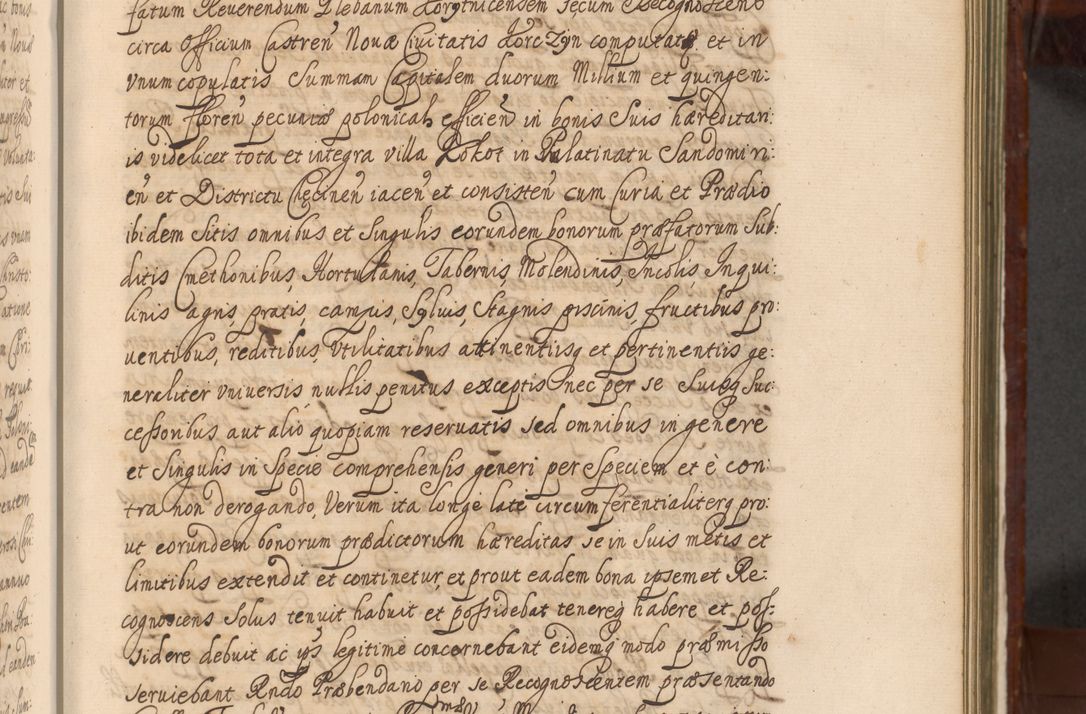 fatum Reverendum Plebanum Korytnicensem secum Recognoscen
circa Officium Castren̄ Novæ Civitatis Korczyn computatq, et in
vnum copulatis Summam Capitalem duorum Millium et quingen:
torum floren̄ pecuniæ polonicalis efficien̄ in bonis Suis hæreditari:
is videlicet tota et integra villa Kokot in Palatinatu Sandomiri:
en̄ et Districtu Chęcinen̄ iacen̄ et consisten̄ cum Curia et Prædio
ibidem Sitis omnibus et Singulis eorundem bonorum præfatorum Sub:
ditis Cmethonibus, Hortulanis, Tabernis, Molendinis, Incolis, Inqui:
linis agris, pratis, campis, Sylvis, Stagnis piscinis, fructibus pro:
ventibus, reditibus, Vtilitatibus attinentiisq et pertinentiis ge:
neraliter vniversis nullis penitus exceptis nec per se Suosq Suc:
cessoribus aut alio quopiam reservatis sed omnibus in genere
et Singulis in Specie comprehensis generi per Speciem et è con:
tra non derogando, Verum ita longè latè circumferentialiterq pro:
ut eorundem bonorum prædictorum hæreditas se in Suis metis et
limitibus extendit et continetur, et prout eadem bona ipsemet Re:
cognoscens Solus tenuit habuit et possidebat tenereq habere et pos:
sidere debuit ac ips legitimè concernebant eidemq modo præmisso
serviebant Rndo Præbendario per se Recognoscentem præsentando